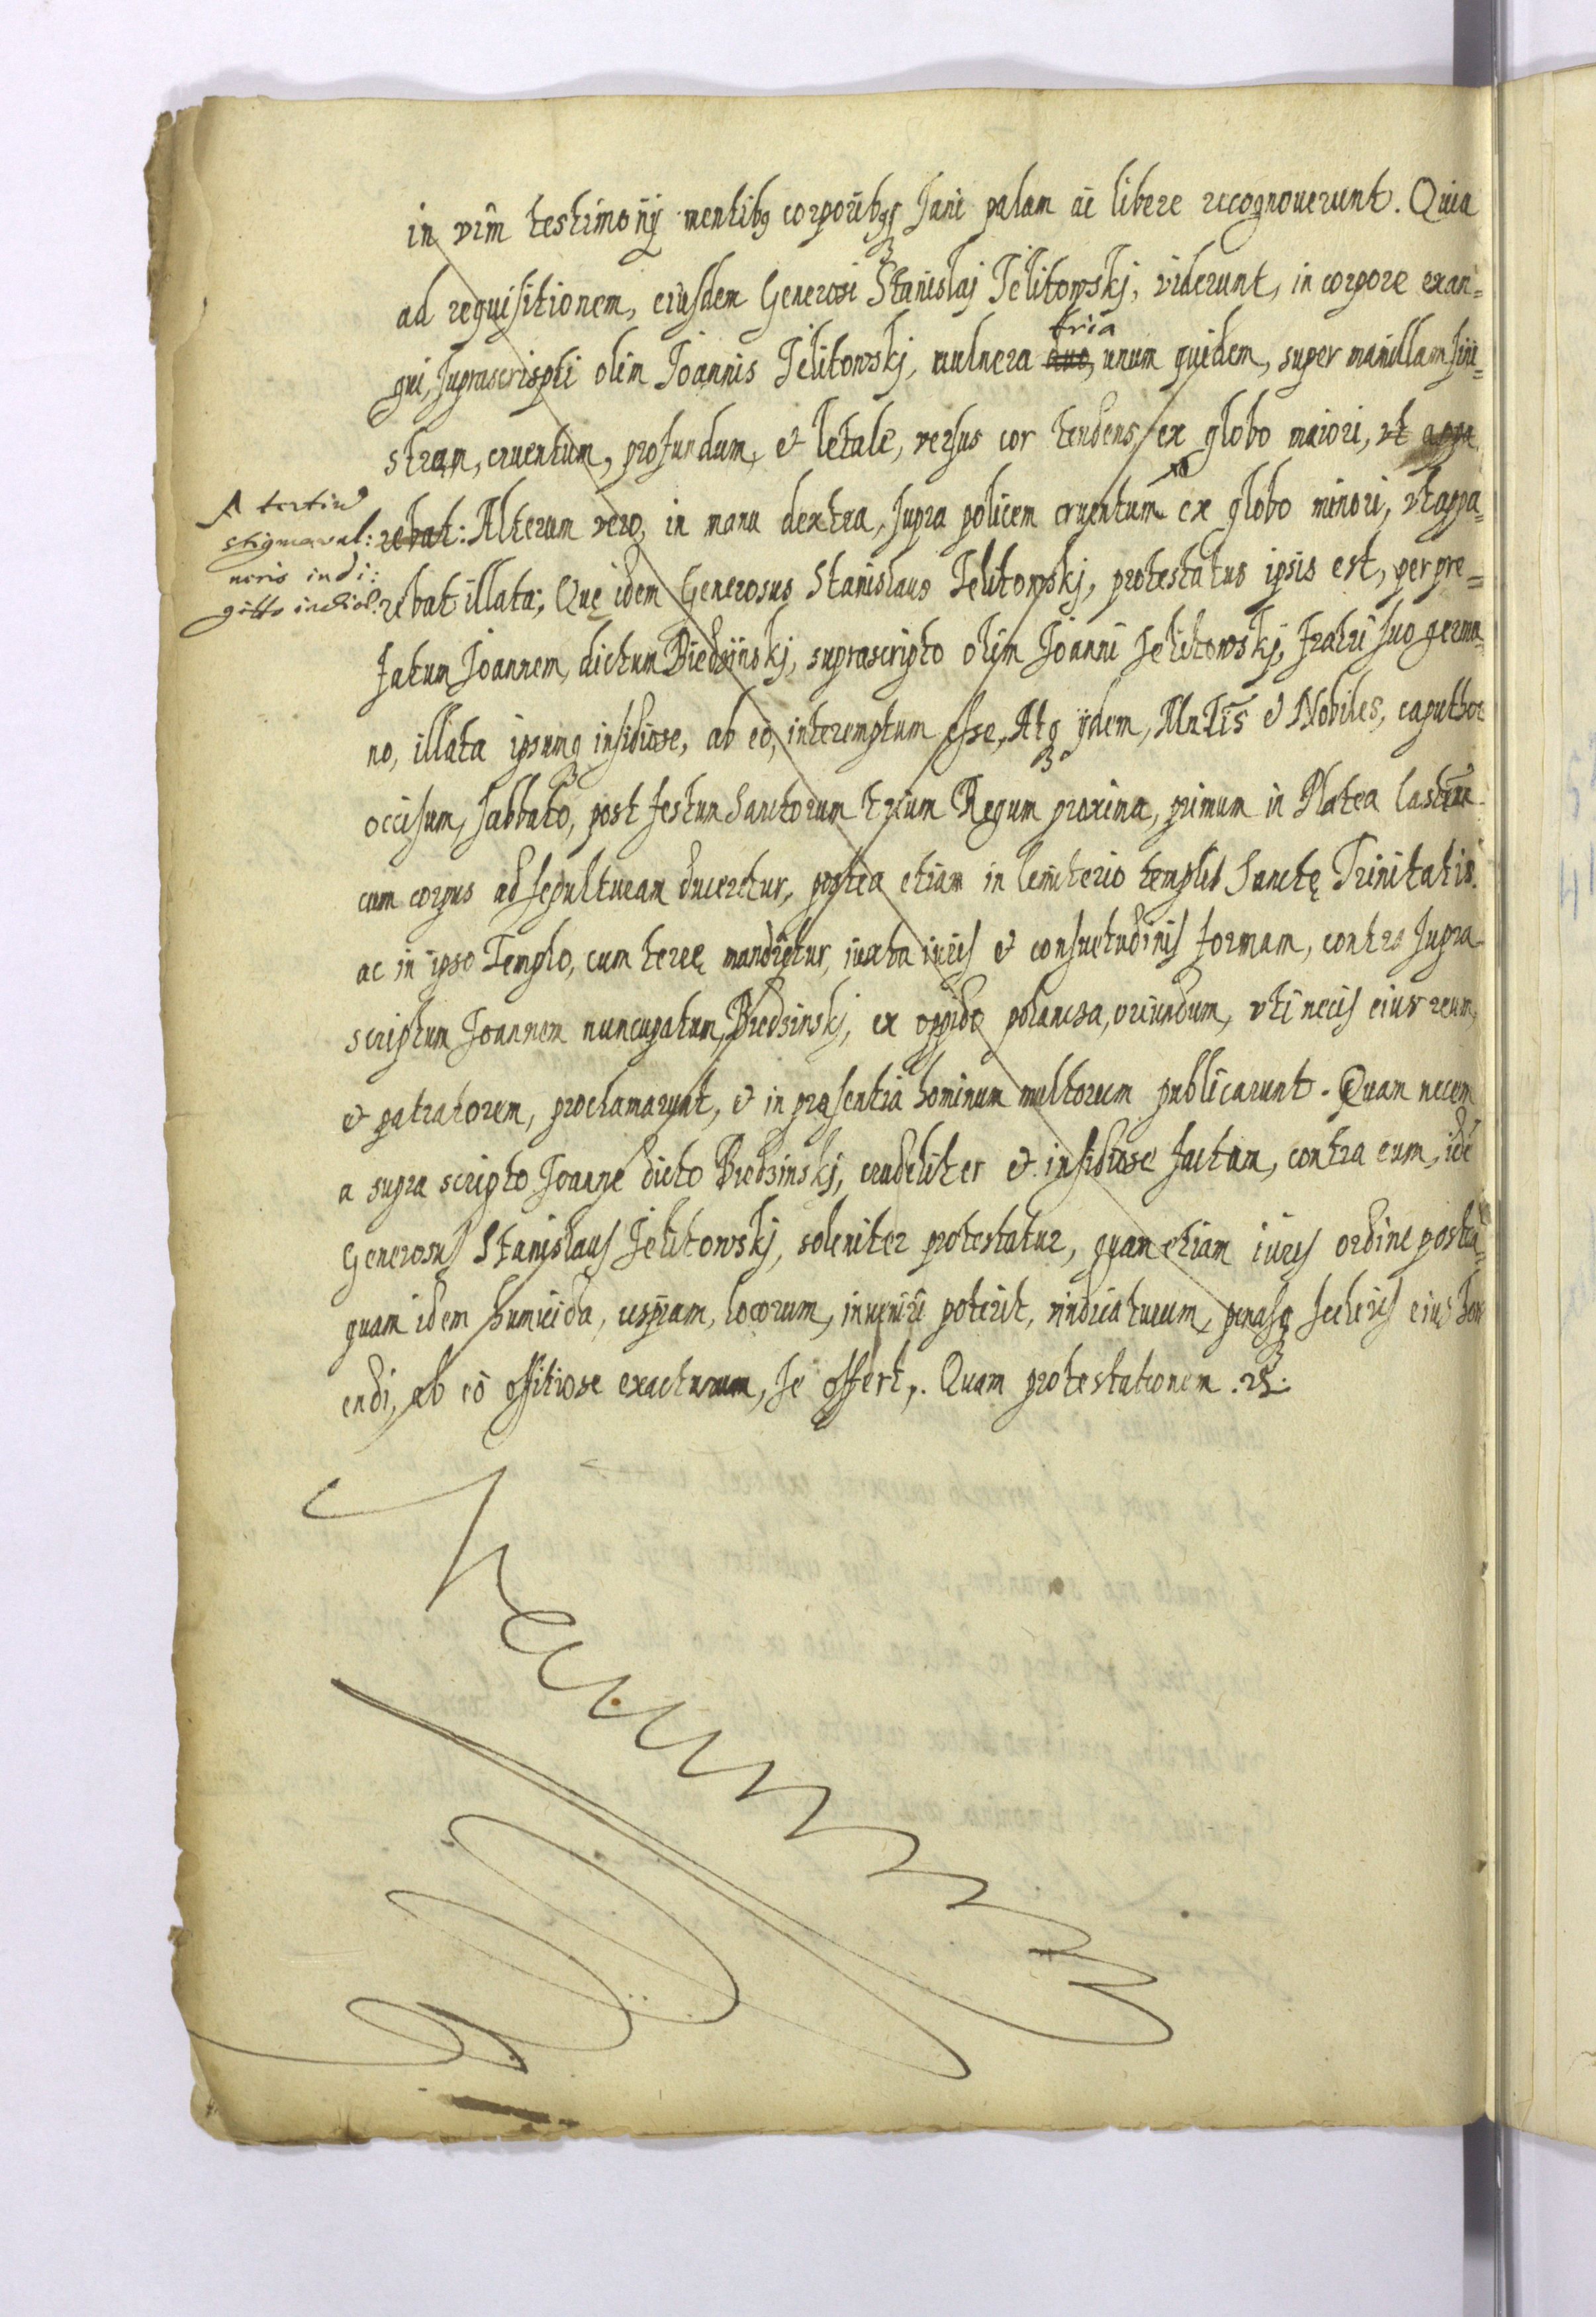 in vim testimonij mentibq corporibqq sani palam ac libere recognouerunt. Quia
ad requisitionem, eiusdem Generosi Stanislaj Jelitowskj, viderunt, in corpore exan=
gui, suprascripti olim Joannis Jelitowskj, uulnera duo, tria unum quidem, super mamillam sini=
stram, cruentum, profundum, et letale, versus cor tendens, ex globo maiori, vt appa
rebat: Alterum vero, in manu dextra, supra policem cruentum ex globo minori, vt appa=
A tertiu
stigma vul:
neris indi:
gitto
rebat illata; Quę idem Generosus Stanislaus Jelitowskj, protestatus ipsis est, per pre=
fatum Joannem, dictum Biedzinskj, suprascripto olim Joanni Jelitowskj, fratri suo germa
no, illata ipsumq insidiose, ab eo, interemptum esse, Atq ijdem, et Nobiles, caput hoc
occisum, sabbato, post festum Sanctorum trium Regum proxima, primum in Platea
cum corpus ad sepulturam duceretur, postea etiam in Cemiterio templi Sanctę Trinitatis.
ac in ipso Templo, cum terrę mandretur, iuxta iuris et consuetudinis formam, contra supra
scriptum Joannem nuncupatum, Biedzinskj, ex oppido polancza, oriundum, vti necis eius reum,
et patratorem, proclamarunt, et in pręsentia hominum multorum publicarunt. Quam necem
a supra scripto Joanne dicto Biedzinskj, crudeliter et insidiose factam, contra eum, ide
Generosus Stanislaus Jelitowskj, soleniter protestatur, quam etiam iuris ordine postea=
quam idem humicida, uspiam, locorum, inueniri poterit, vindicaturum, penasq sceleris eius
endi, ab eo offitiose exacturum, se offert,. Quam protestationem.